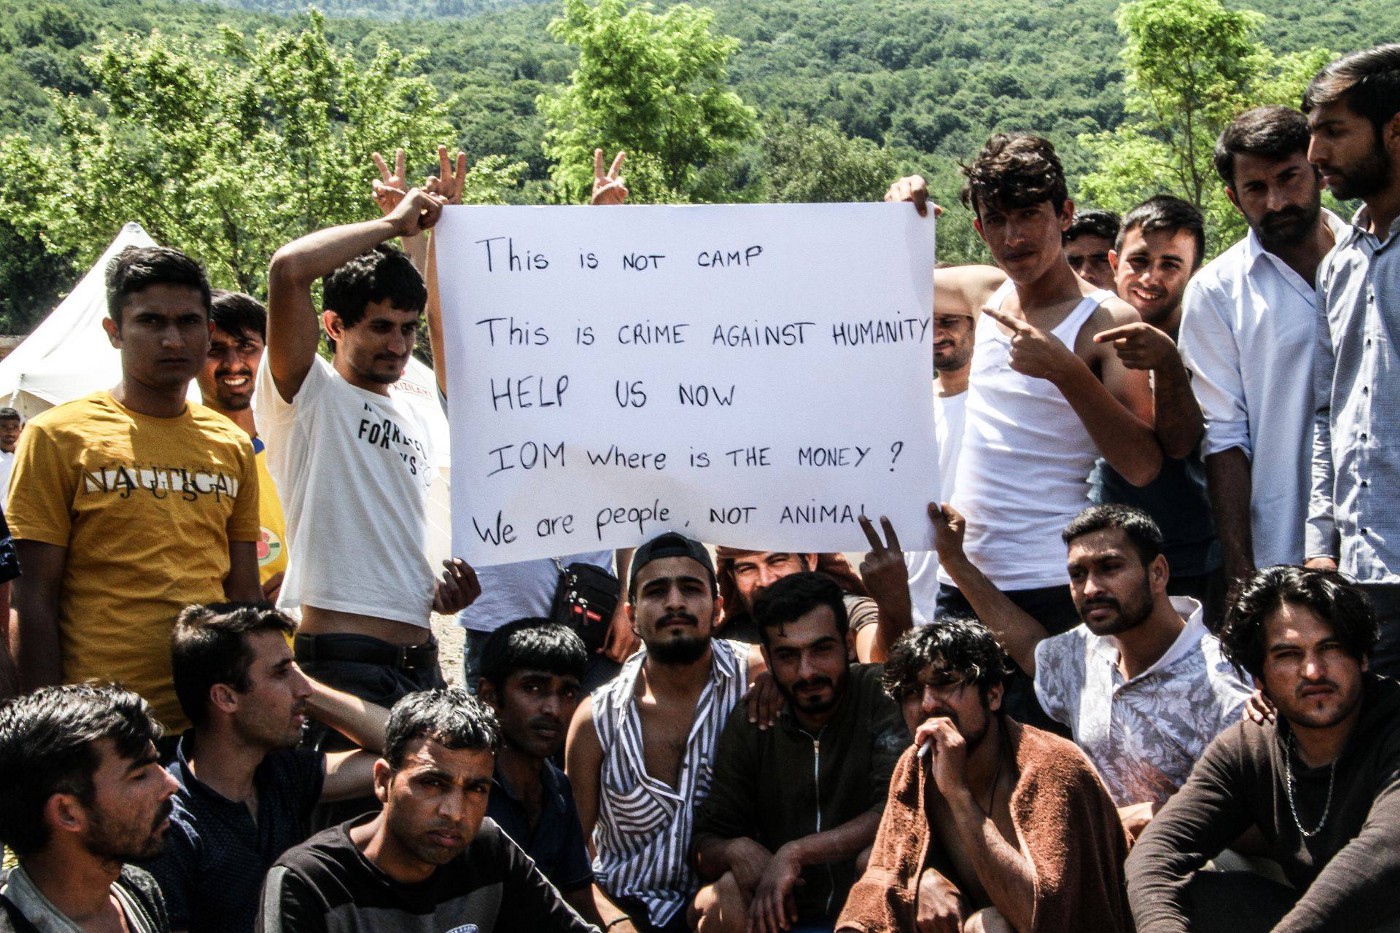 This is NOT CAMP
This is CRIME AGAINST HUMANITY
HELP US NOW
IOM Where is THE MONEY ?
We are people, NOT ANIMAL
NAUTICAL
FOR
KIZILAY